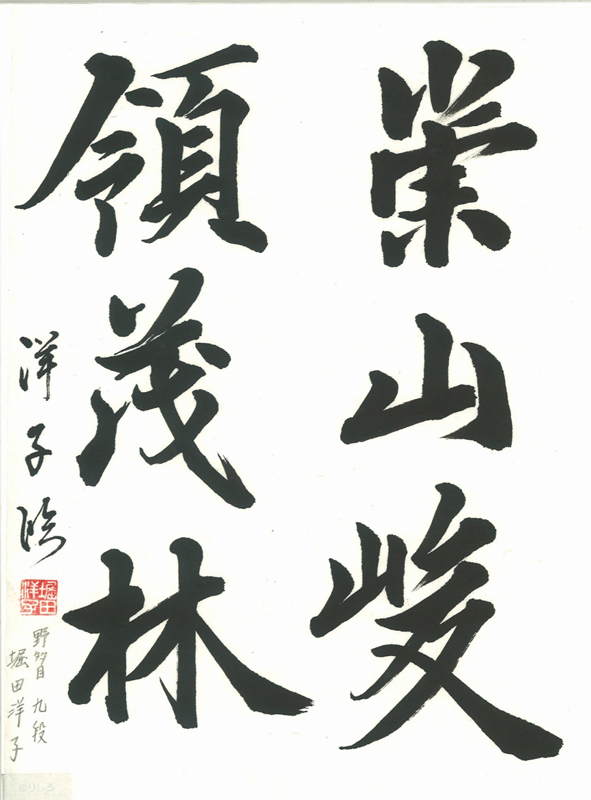 崇山峻
領茂林
洋子臨
堀田
洋子
野多目 九段
堀田洋子